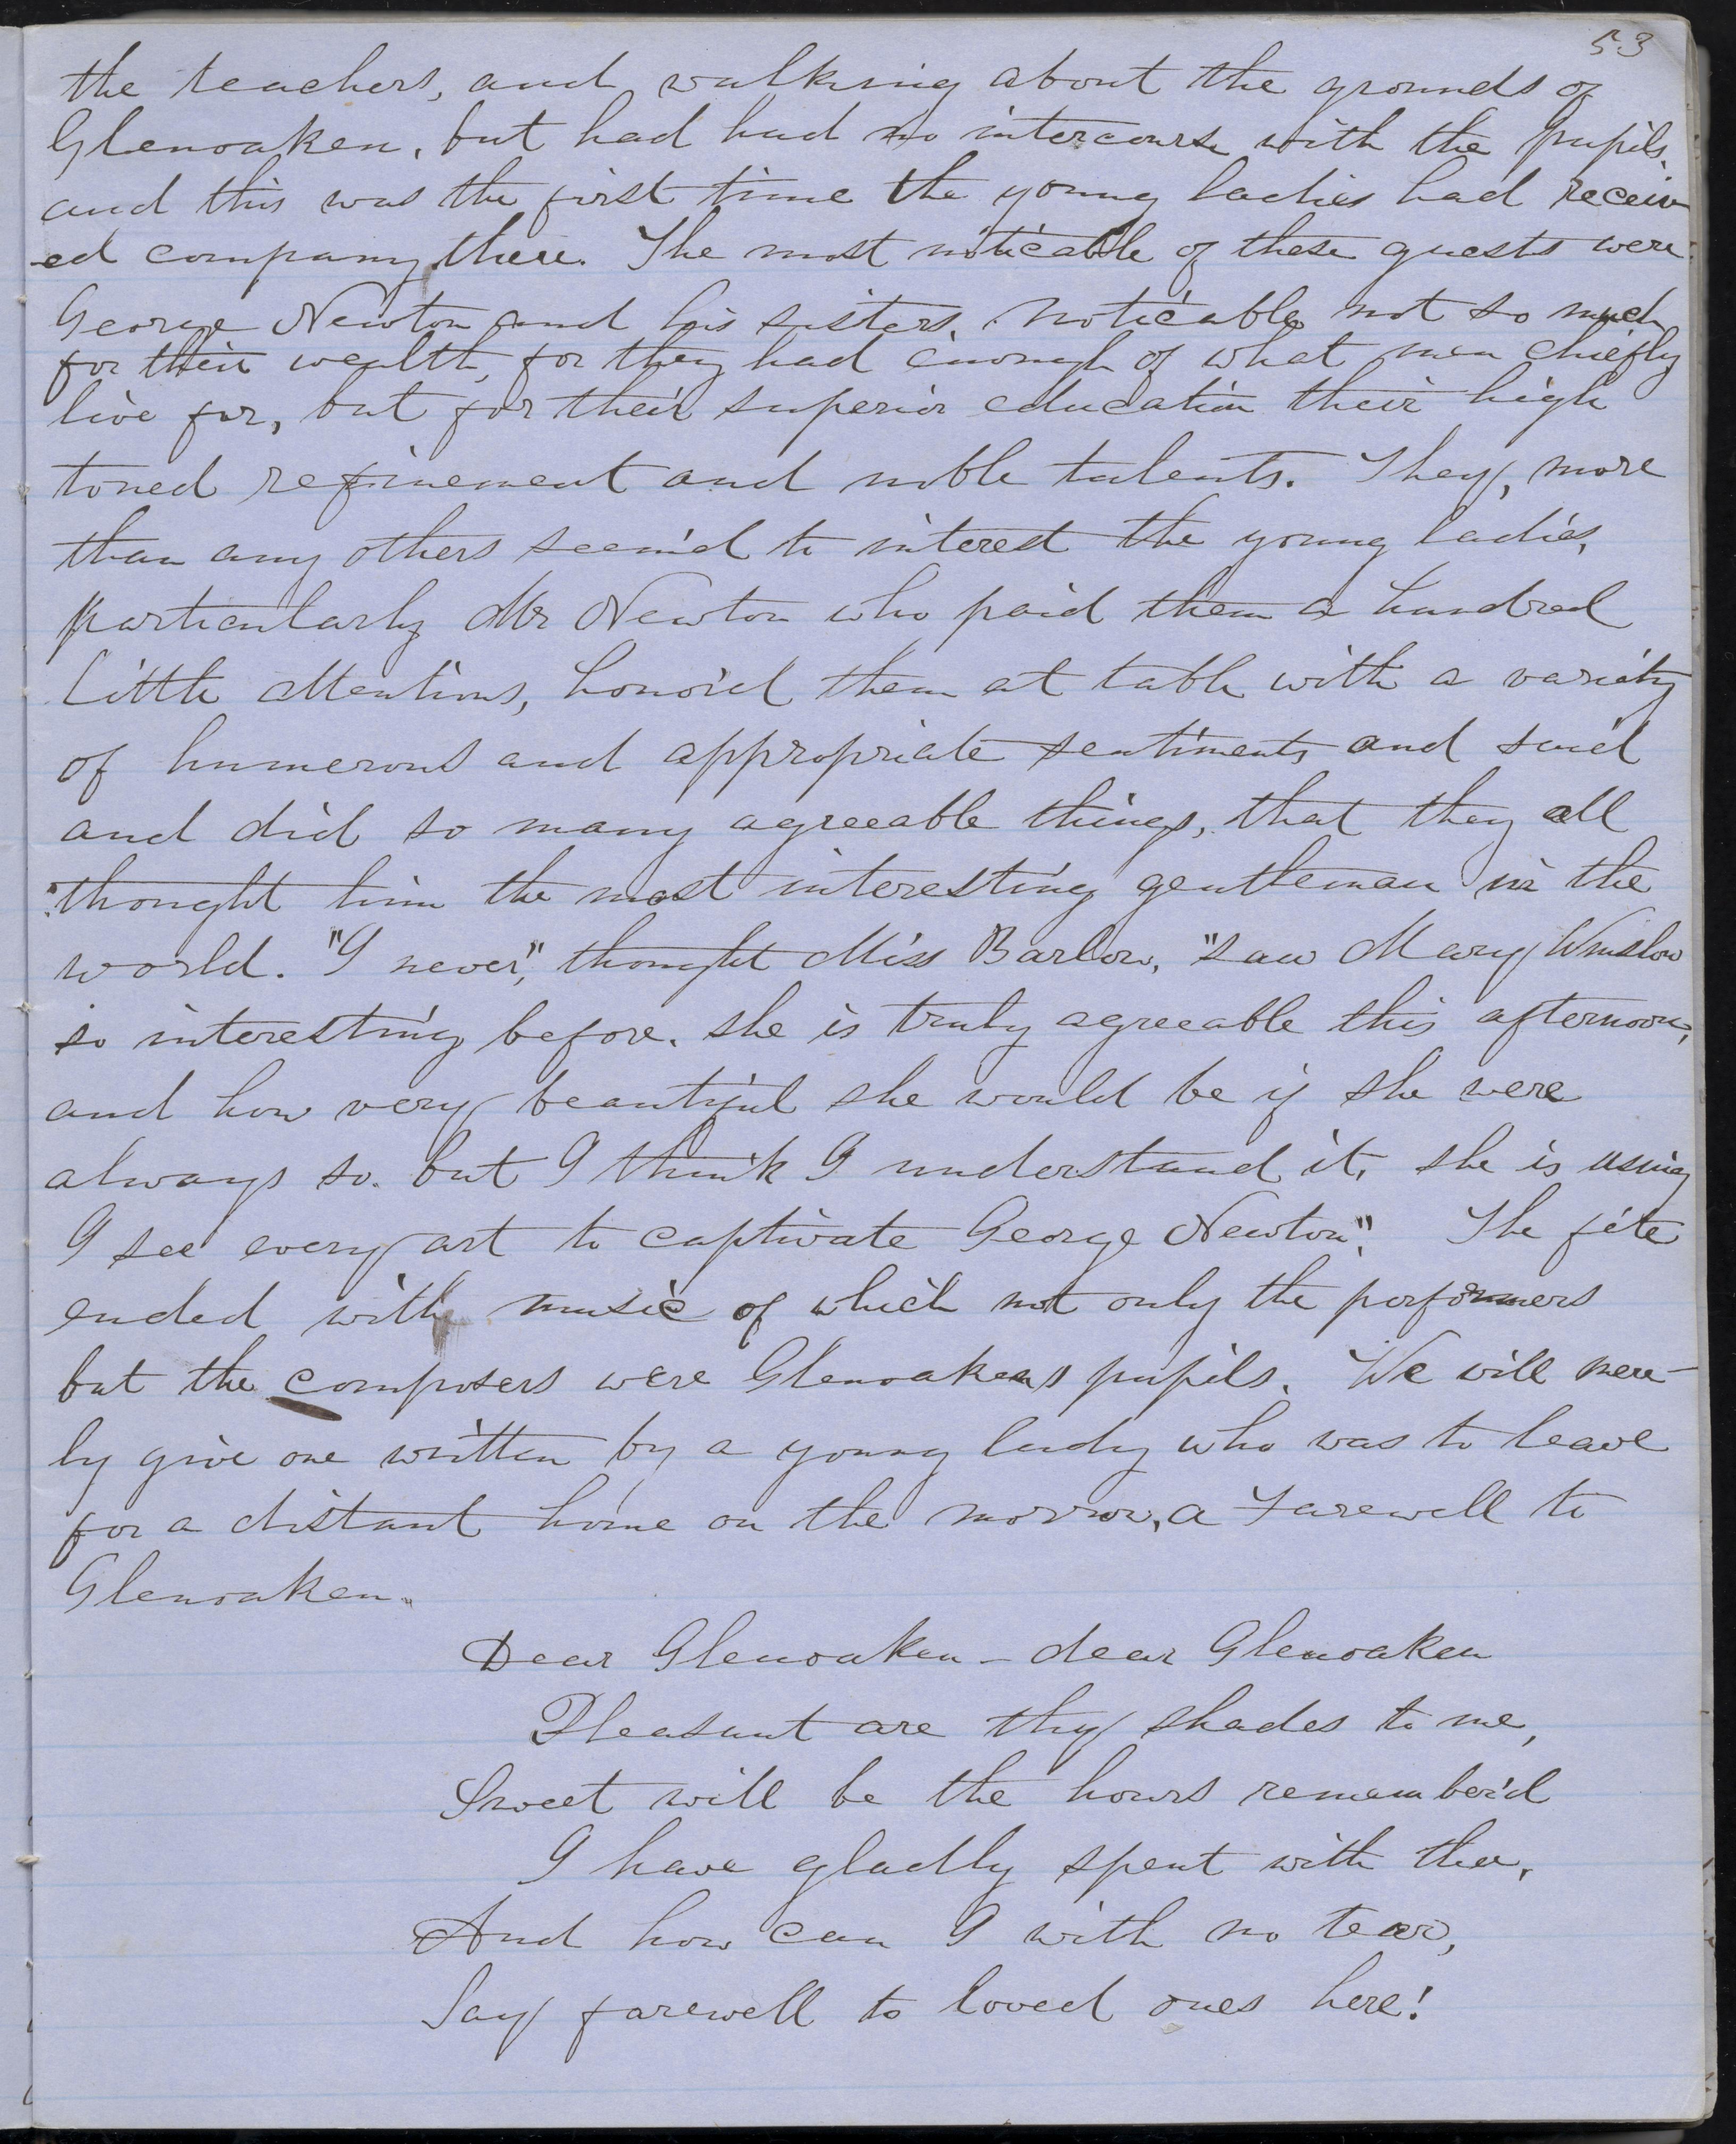 53
the teachers, and walking about the grounds of
Glenoaken, but had had no intercourse with the pupils,
and this was the first time the young ladies had receiv
ed company there. The most noticable of these guests were
George Newton and his sisters, noticable not so much
for their wealth, for they had enough of what men chiefly
live for, but for their superior education their high
toned refinement and noble talents. They, more
than any others seem'd to interest the young ladies,
particularly Mr Newton who paid them a hundred
little attentions, honor'd them at table with a variety
of humerous and appropriate sentiments and said
and did so many agreeable things, that they all
thought him the most interesting gentleman in the
world. "I never", thought Miss Barlow, "saw Mary Winslow
so interesting before. she is truly agreeable this afternoon,
and how very beautiful she would be if she were
always so. but I think I understand it, she is using
I see every art to captivate George Newton". The fête
ended with music of which not only the performers
but the composers were Glenoakens pupils. We will mere-
ly give one written by a young lady who was to leave
for a distant home on the morrow, a Farewell to
Glenoaken.
Dear Glenoaken - dear Glenoaken
Pleasant are thy shades to me,
Sweet will be the hours remember'd
I have gladly spent with thee,
And how can I with no tear,
Say farewell to loved ones here!